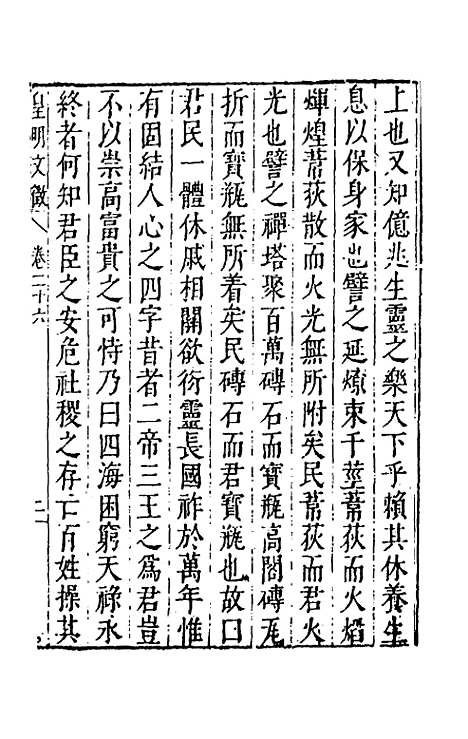 上也又知億兆生靈之樂天下乎賴其休養生
息以保身家也譬之延燎束千莖蓇荻而火焰
煇煌蓇荻散而火光無所附矣民蓇荻而君火
光也譬之禪塔聚百萬磚石而寶瓶高閣磚瓦
折而寶瓶無所着矣民磚石而君寶瓶也故曰
君民一體休戚相關欲衍靈長國祚於萬年惟
有固結人心之四字昔者二帝三王之爲君豈
不以崇高富貴之可恃乃曰四海困窮天祿永
終者何知君臣之安危社稷之存亡百姓操其
皇明文徵 卷二十六 二